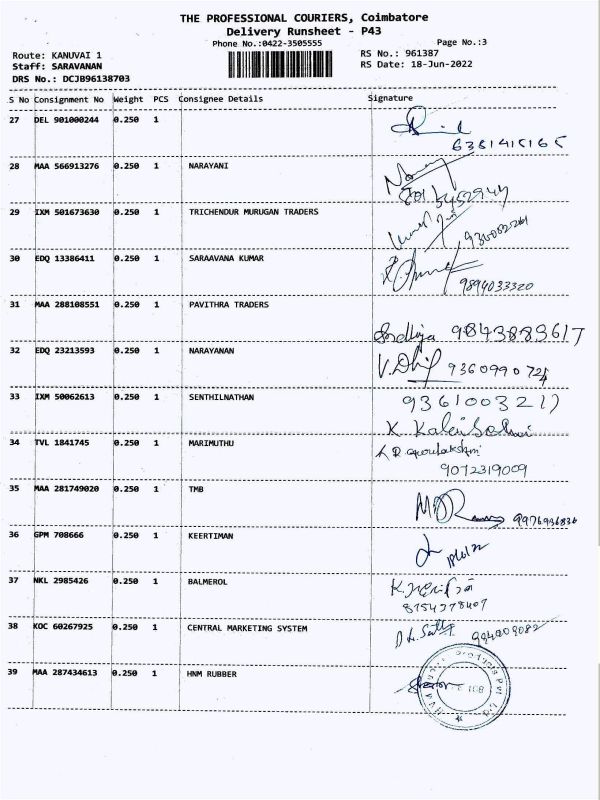 THE PROFESSIONAL COURIERS, Coimbatore
Delivery Runsheet - P43
Phone No.:0422-3505555
Page No.:3
Route: KANUVAI 1
RS No.: 961387
Staff: SARAVANAN
RS Date: 18-Jun-2022
DRS No.: DCJB96138703
S No Consignment No Weight PCS Consignee Details Signature
27 DEL 901000244 0.250 1
6381415165
28 MAA 566913276 0.250 1 NARAYANI
29 IXM 501673630 0.250 1 TRICHENDUR MURUGAN TRADERS
30 EDQ 13386411 0.250 1 SARAAVANA KUMAR
9894033320
31 MAA 288108551 0.250 1 PAVITHRA TRADERS
9843883617
32 EDQ 23213593 0.250 1 NARAYANAN
33 IXM 50062613 0.250 1 SENTHILNATHAN
9361003217
34 TVL 1841745 0.250 1 MARIMUTHU
9072319009
35 MAA 281749020 0.250 1 TMB
36 GPM 708666 0.250 1 KEERTIMAN
37 NKL 2985426 0.250 1 BALMEROL
38 KOC 60267925 0.250 1 CENTRAL MARKETING SYSTEM
39 MAA 287434613 0.250 1 HNM RUBBER